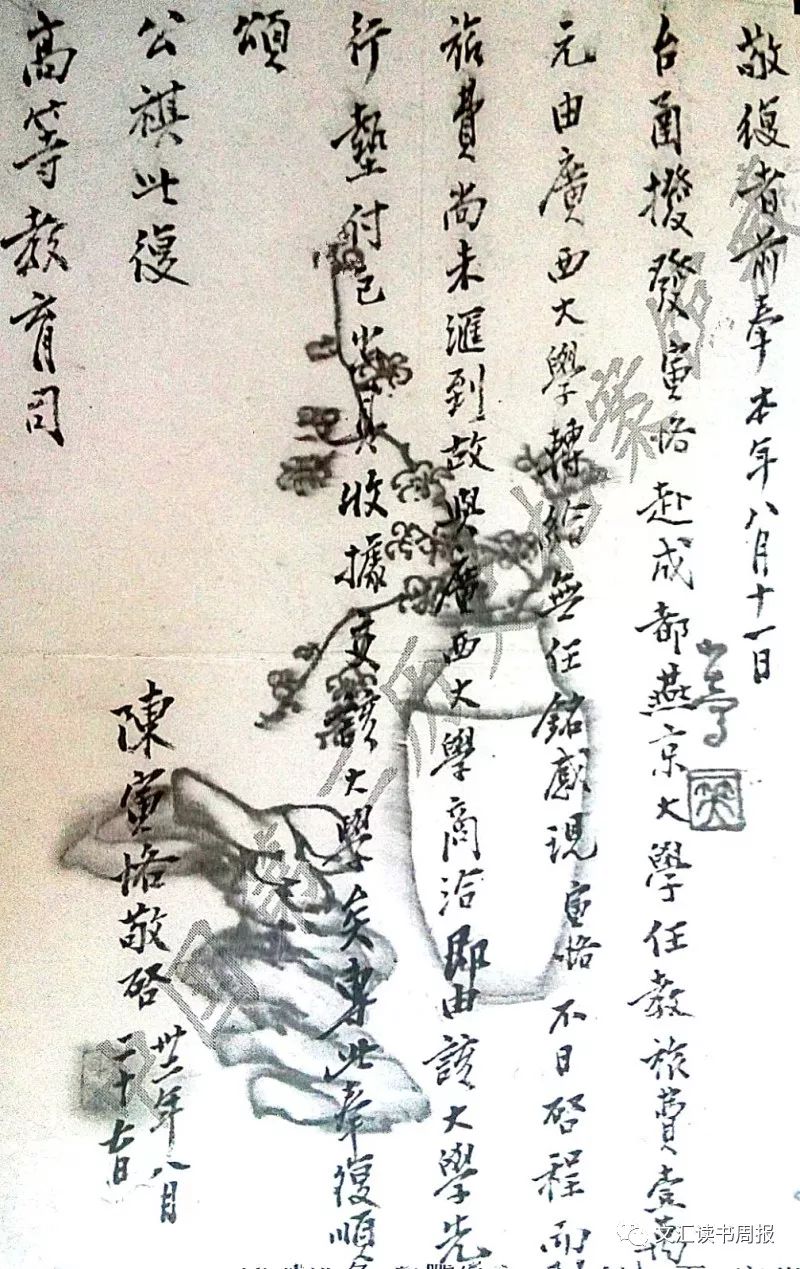 敬復者前奉本年八月十一日
台函撥發寅恪赴成都燕京大學任教旅費壹萬
元由廣西大學轉給無任銘感現寅恪不日啓程而
旅費尚未滙到故與廣西大學商洽即由該大學先
行墊付已出具收據交該大學矣專此奉復順
頌
公祺此復
高等教育司
陳寅恪敬啓
卅二年八月
二十七日
文汇读书周报